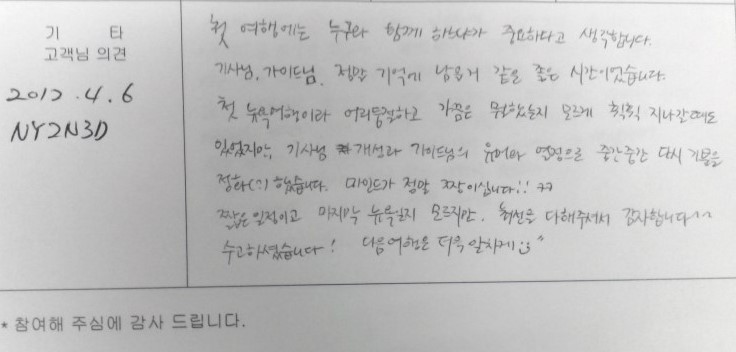 기 타
고객님 의견
2012.4.6
NY2N3D
첫 여행에는 누구와 함께 하느냐가 중요하다고 생각합니다.
기사님, 가이드님, 정말 기억에 남을거 같은 좋은 시간이었습니다.
첫 뉴욕여행이라 어리둥절하고 가끔은 뭘했는지 모르게 휙휙 지나간때도
있었지만, 기사님 개선라 가이드님의 유머와 열정으로 중간중간 다시 기분을
정화(?) 했습니다. 마인드가 정말 짱이십니다!! ㅋㅋ
짧은일정이고 마지막 뉴욕일지 모르지만. 최선을 다해주셔서 감사합니다^^
수고하셨습니다! 다음여행은 더욱 알차게
* 참여해 주심에 감사 드립니다.